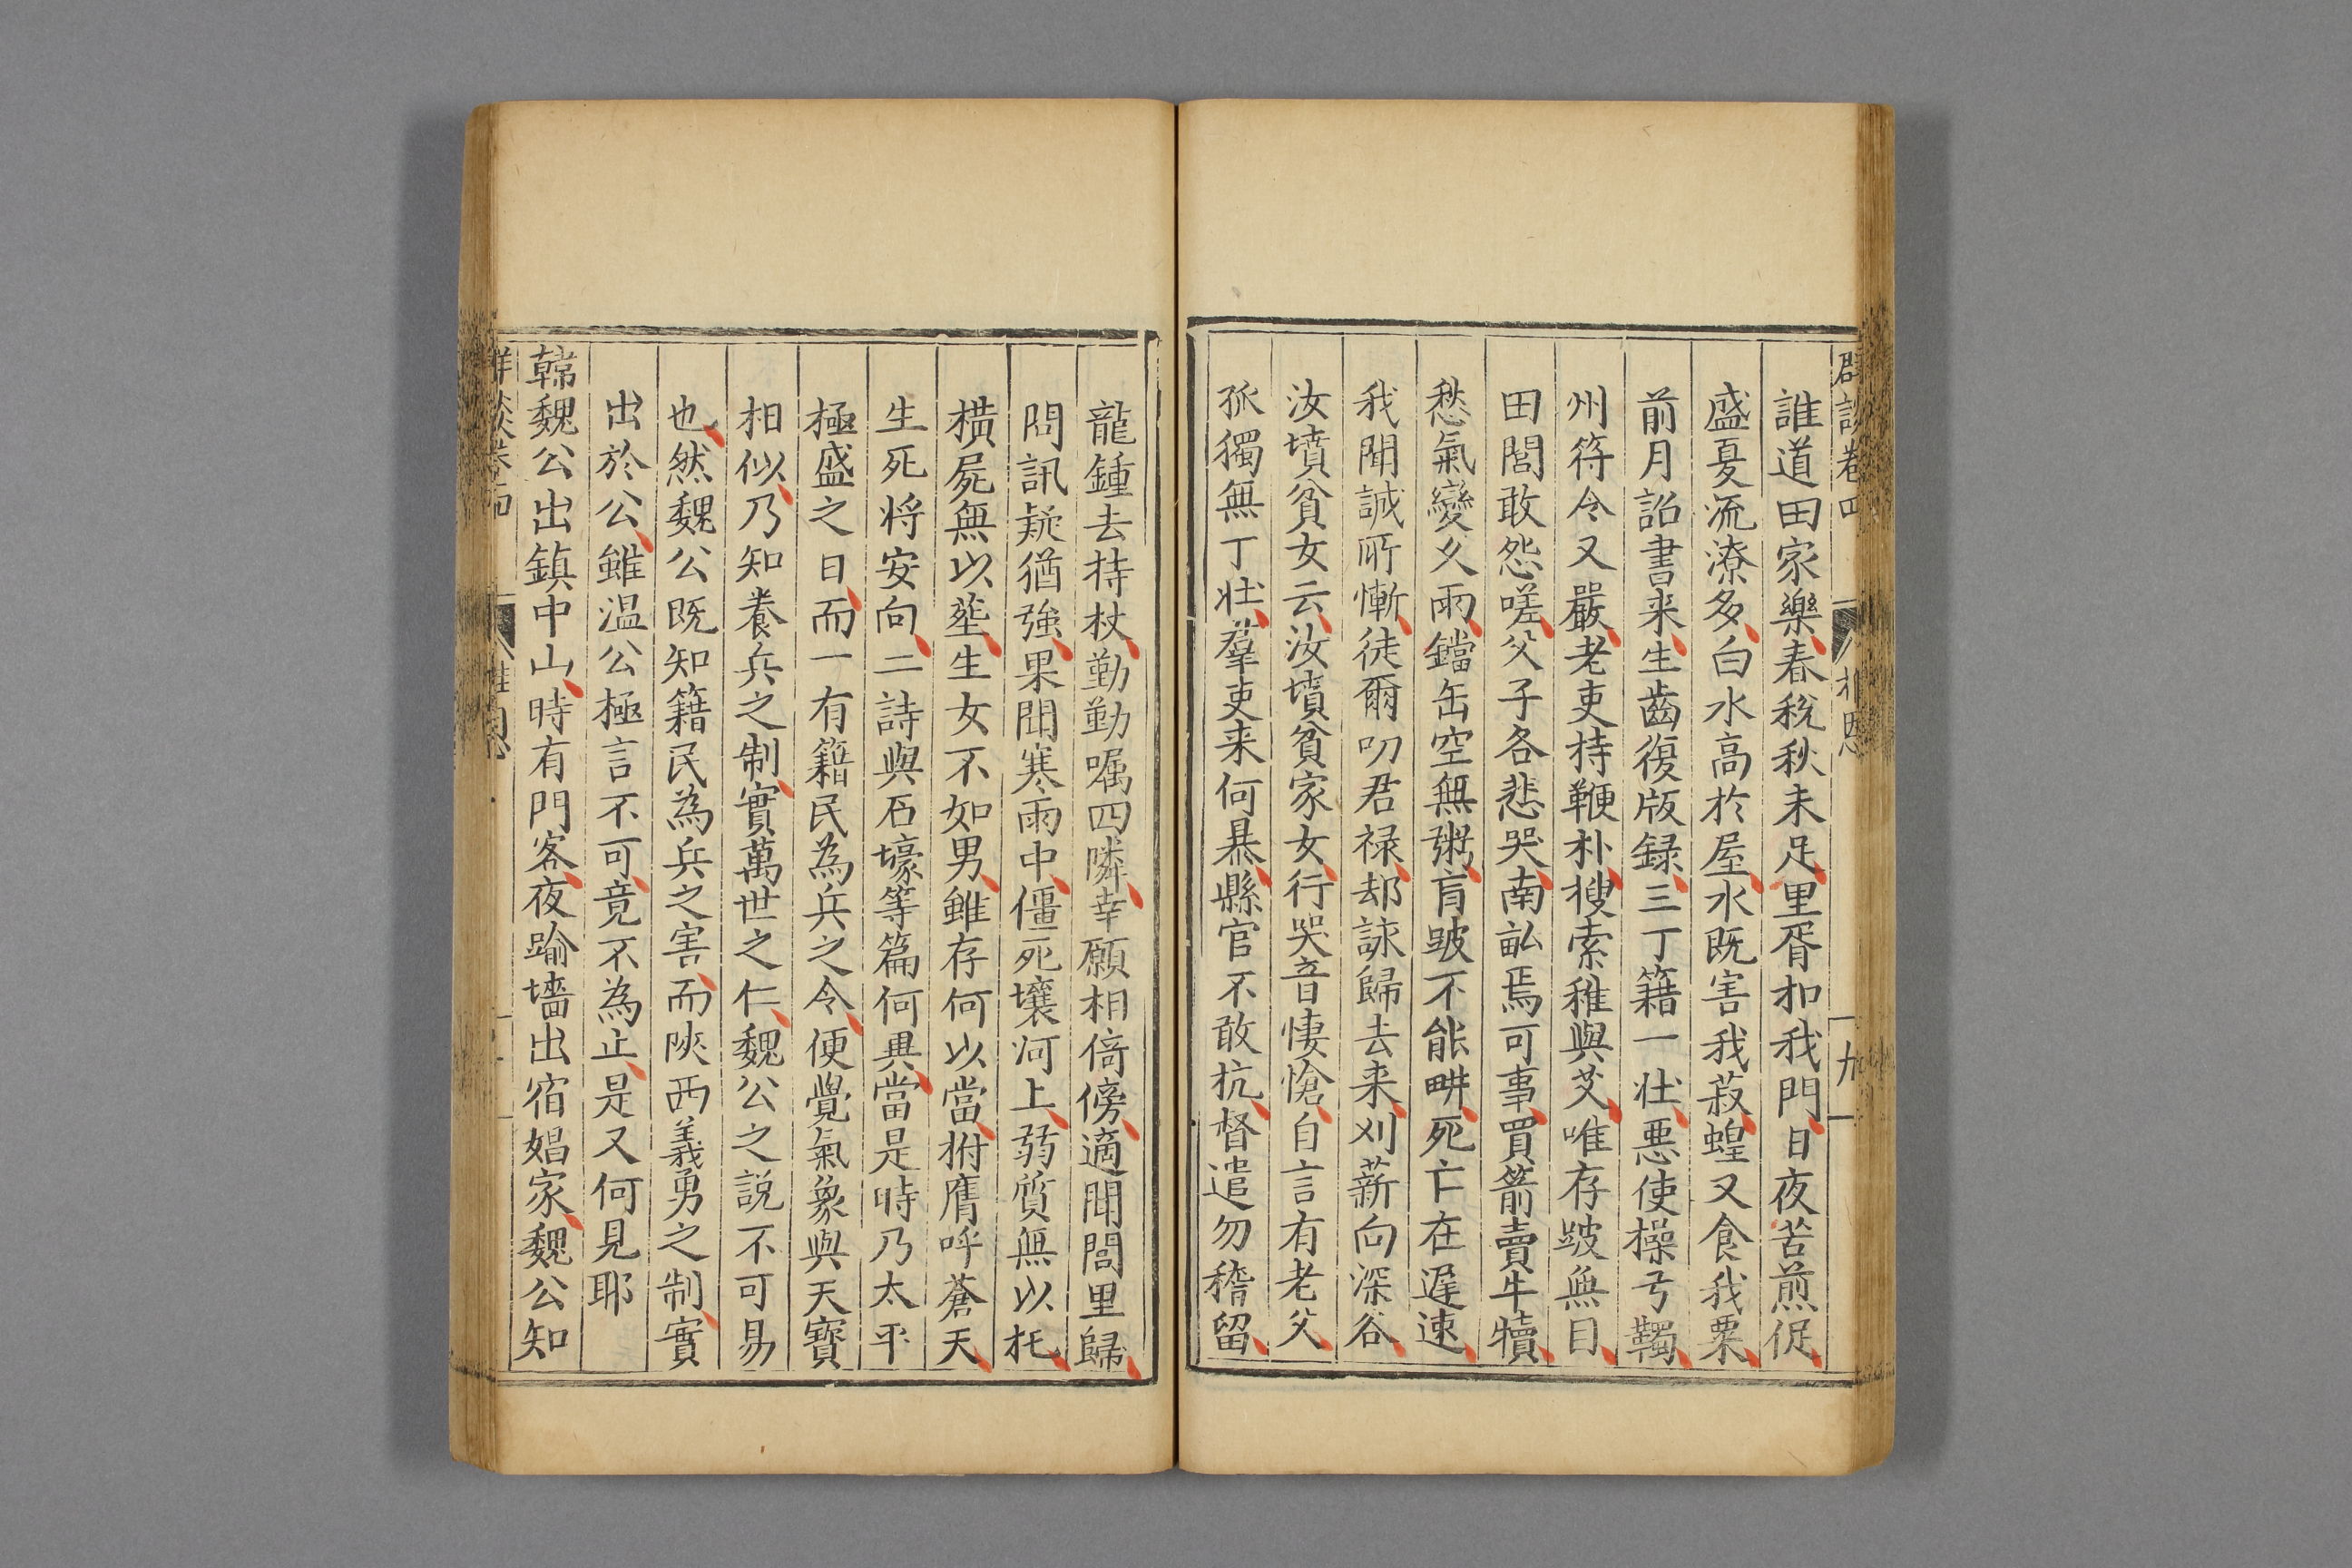 羣談卷四
九
誰道田家樂春稅秋未足里胥扣我門日夜苦煎促
盛夏流潦多白水高於屋水既害我菽蝗又食我粟
前月詔書来生齒復版録三丁籍一壮惡使操弓韣
州符令又嚴老吏持鞭朴搜索稚與艾唯存跛無目
田閭敢怨嗟父子各悲哭南畝焉可事買箭賣牛犢
愁氣變久雨鐺缶空無粥盲跛不能畊死亡在遲速
我聞誠所慚徒爾叨君禄却詠歸去来刈薪向深谷
汝墳貧女云汝墳貧家女行哭音悽愴自言有老父
孤獨無丁壮羣吏来何暴縣官不敢抗督遣勿稽留
龍鍾去持杖勤勤嘱四隣幸願相倚傍適聞閭里歸
問訊疑猶強果聞寒雨中僵死壤河上弱質無以托
横屍無以塟生女不如男雖存何以當拊膺呼蒼天
生死将安向二詩與石壕等篇何異當是時乃太平
極盛之日而一有籍民為兵之令便覺氣象與天寶
相似乃知養兵之制實萬世之仁魏公之説不可易
也然魏公既知籍民為兵之害而陝西義勇之制實
出於公雖温公極言不可竟不為止是又何見耶
韓魏公出鎮中山時有門客夜踰墻出宿娼家魏公知